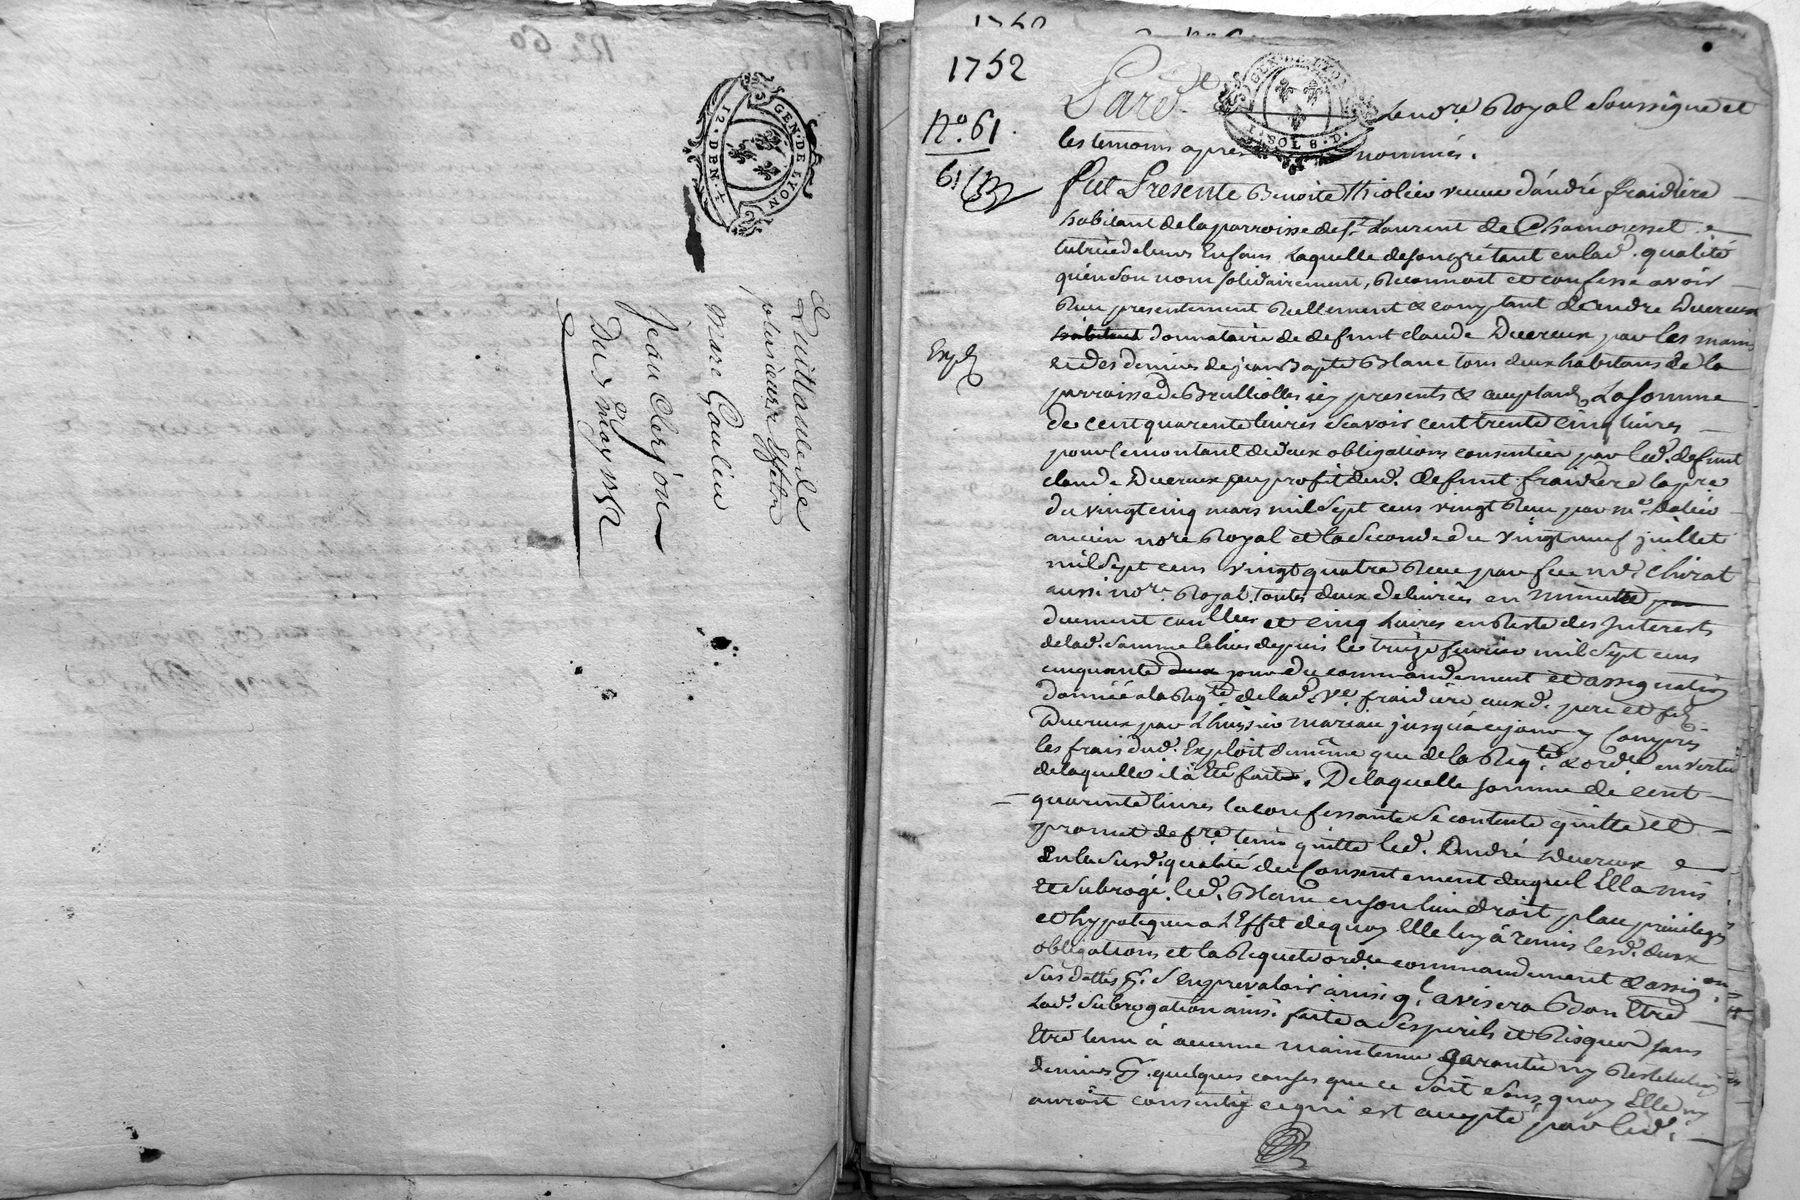 GEN. DE LYON
12. DEN. T.
Quittance de
plusieurs Effets
Marc Gaulin
Jean Clerjon
Du 2 may 1752
1752
No. 61
61
GEN. DE LYON
1. SOL 8. D.
Pard.t Le no.re Royal Soussigné et
les temoins apres nommés.
fut Presente Benoite Thiolier veuve d'andré fraidière
habitant de la parroisse de St. Laurent de Chamousset e
tutrice de leurs Enfans Laquelle de son gré tant en lad. qualité
qu'en son nom solidairement, Reconnoit et confesse avoir
Receu presentement Reellement & comptant d'andré Ducreux
habitant donnataire de defunt claude Ducreux par les mains
et des deniers de jean Bapte Blanc tous deux habitans de la
parroisse de Brullioles icy presents & acceptants La somme
de cent quarente livres sçavoir cent trente cinq livres
pour le montant de deux obligations consenties par led. defunt
claude Ducreux au profit dud. defunt fraidiere la pre
du vingt cinq mars mil sept cens vingt Receu par me.
ancien nore Royal et la Seconde du vingt neuf juillet
mil sept cens vingt quatre Receu par feu me. Chirat
aussi nore. Royal, toutes deux delivrées en minutte par
duement et cinq Livres en Reste des Interests
de lad. Somme Echus depuis le treize fevrier mil sept cens
cinquante deux jour du commandement et assignation
donnée a la Reqte de lad. Ve. fraidiere auxd. pere et fils
Ducreux par L'huissier mariau jusqu'a ce jour y Compris
les frais dud. Exploit de même que de la Reqte & ordce en vertu
de laquelle il à Eté faits. De laquelle somme de cent
quarente livres la confessante Se contente quitte et
promet de fre tenir quitte led. André Ducreux e
En la Susd. qualité du Consentement duquel Ella mis
et Subrogé led. Blanc en son lieu droit place privileges
et hypoteques a L'Effet de quoy Elle luy à remis lesd. deux
obligations et la Requete ordce commandement & assigons
Sus dattés pr. S'en prevaloir ainsi q'l avisera Bon Etre
Lad. Subrogation ainsi faite a Ses perils et Risques sans
Etre tenu à aucune maintenue garantie ny Restitution
deniers pr. quelques causes que ce soit sans quoy Elle ny
auroit consentie ce qui est accepté par led.